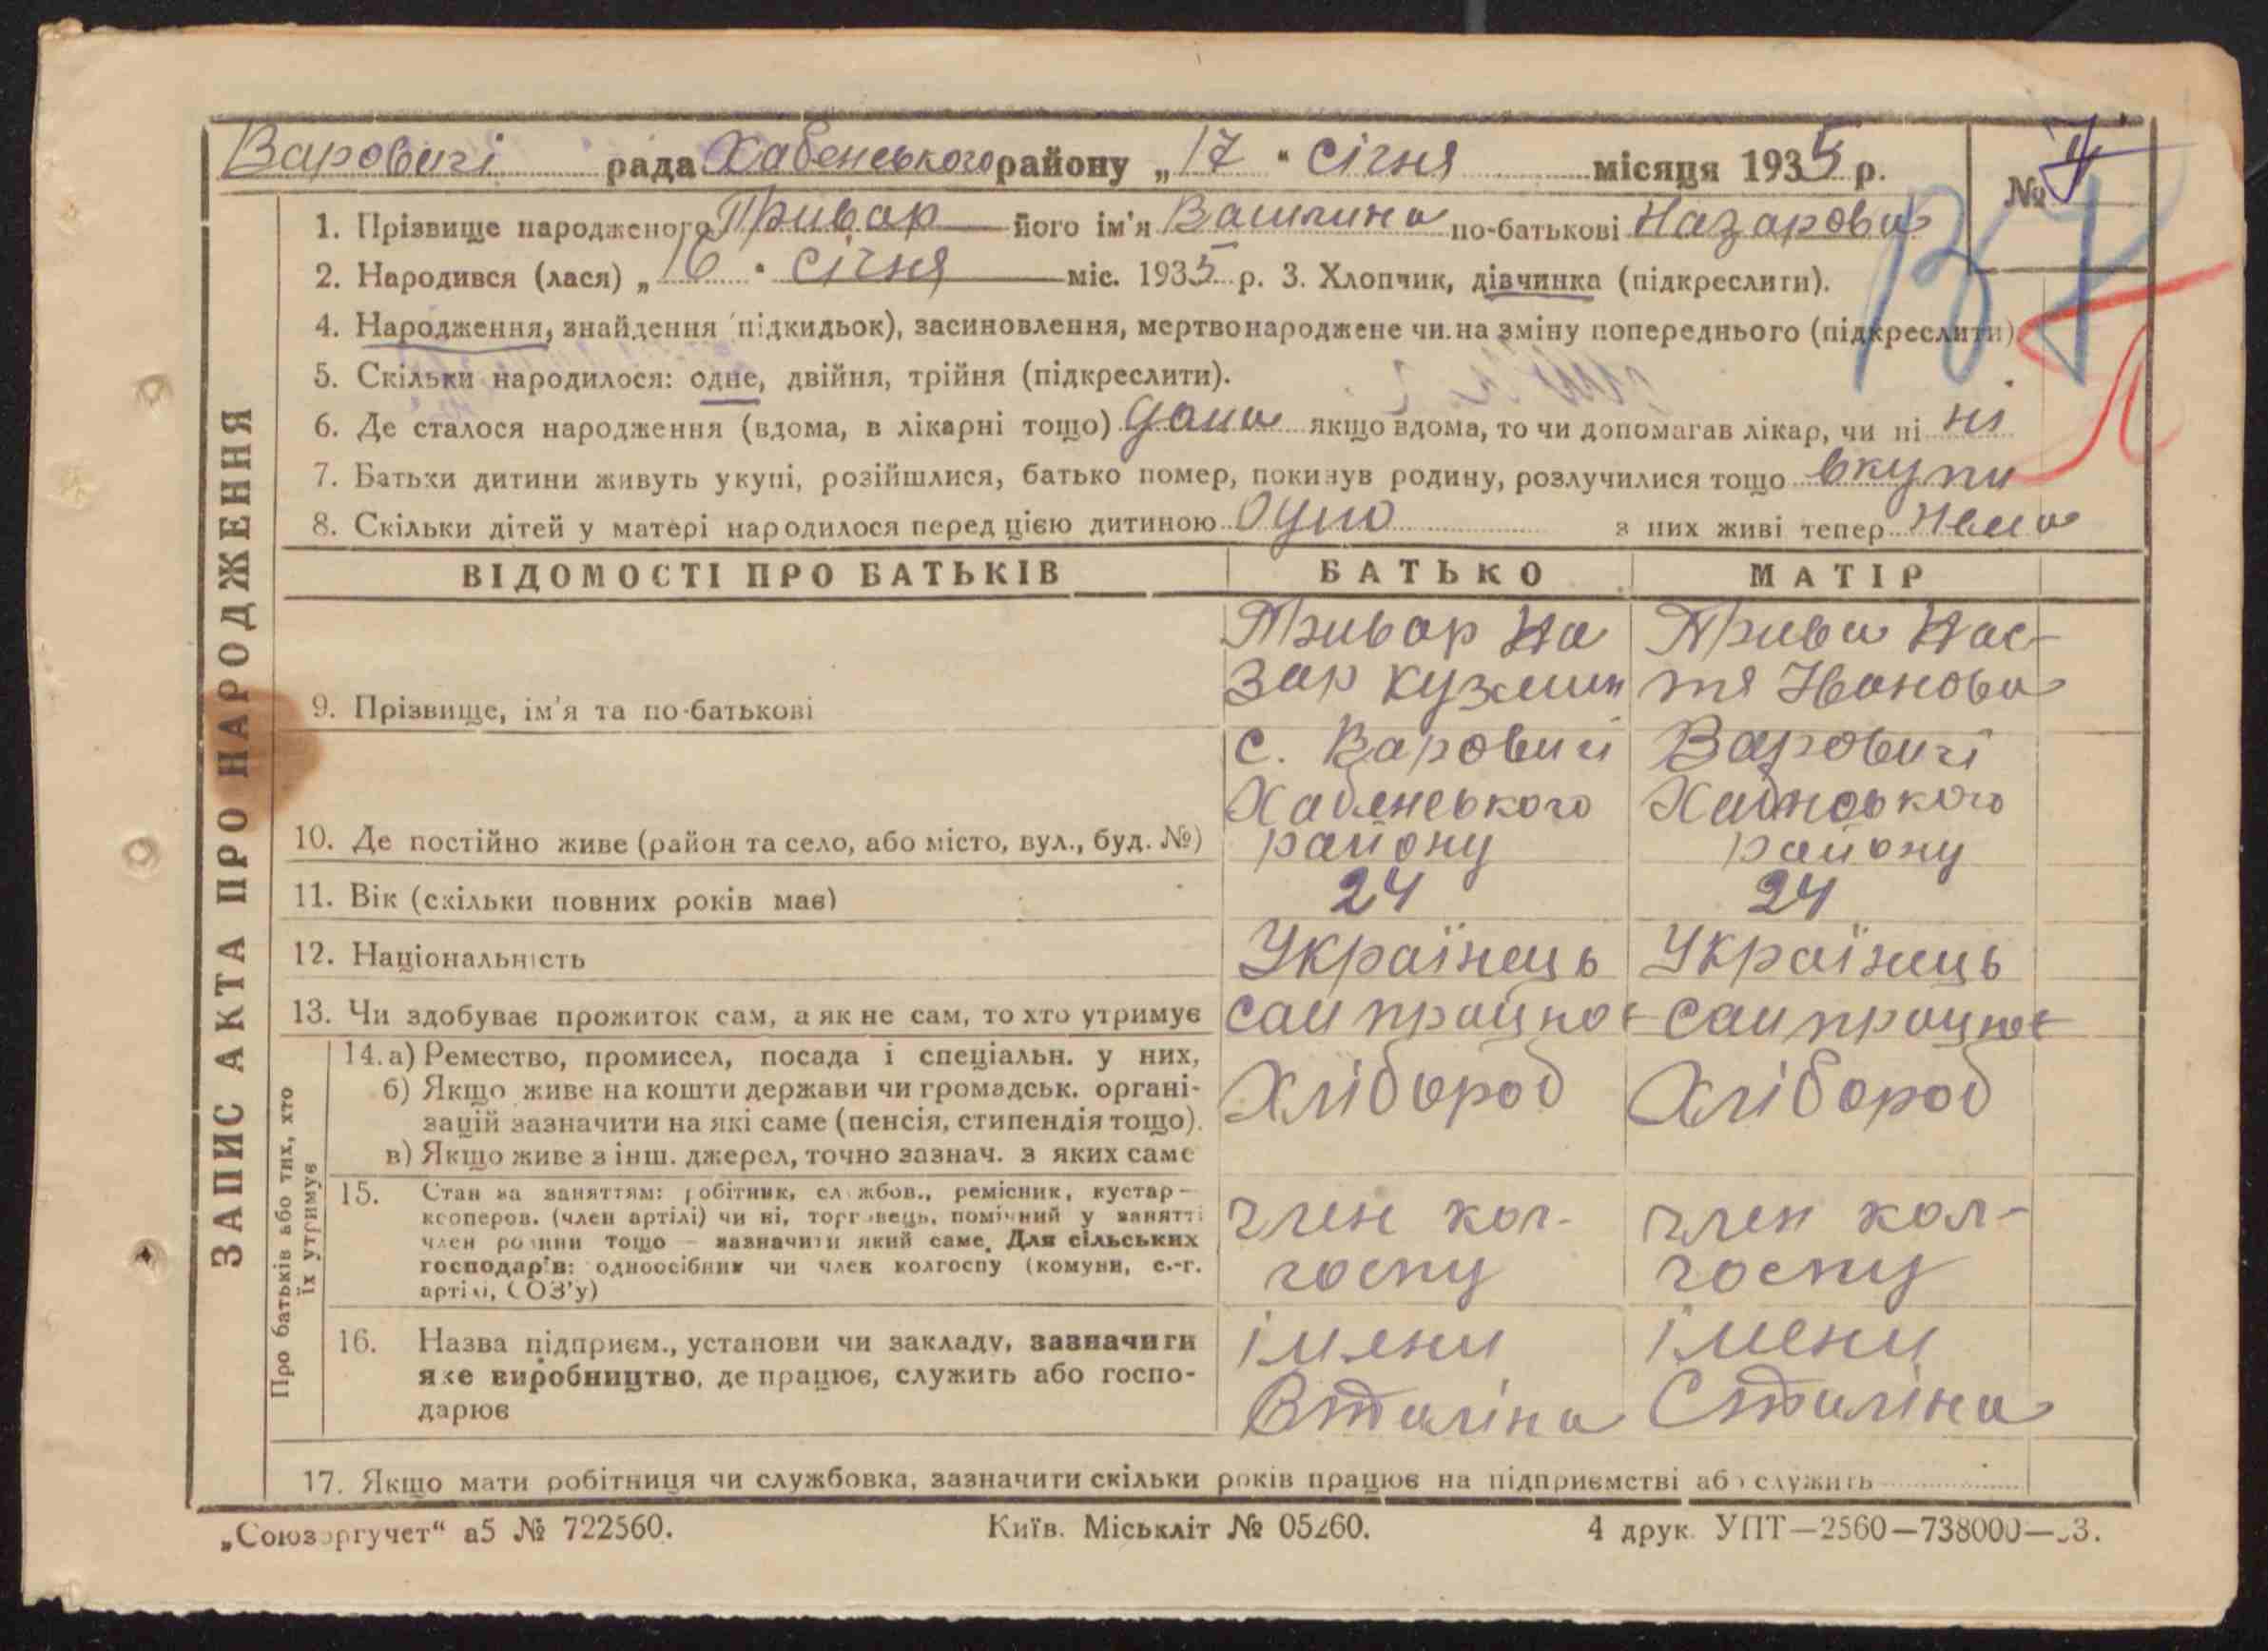 Варовичі рада Хабенського району „17“ січня місяця 1935 р.
№
1. Прізвище народженого Привар його ім'я по-батькові Назарова
2. Народився (лася) „16“ січня міс. 1935 р. 3. Хлопчик, дівчинка (підкреслити).
4. Народження, знайдення (підкидьок), засиновлення, мертвонароджене чи на зміну попереднього (підкреслити)
5. Скільки народилося: одне, двійня, трійня (підкреслити).
6. Де сталося народження (вдома, в лікарні тощо) дома якщо вдома, то чи допомагав лікар, чи ні ні
7. Батьки дитини живуть укупі, розійшлися, батько помер, покинув родину, розлучилися тощо вкупи
8. Скільки дітей у матері народилося перед цією дитиною одно з них живі тепер нема
ВІДОМОСТІ ПРО БАТЬКІВ БАТЬКО МАТІР
Привар На Прива Нас-
зар Кузьмин тя Іванова
9. Прізвище, ім'я та по-батькові
с. Варовичі Варовичі
Хабенського Хабнського
10. Де постійно живе (район та село, або місто, вул., буд. №) району району
11. Вік (скільки повних років має) 24 24
12. Національність Українець Українець
13. Чи здобуває прожиток сам, а як не сам, то хто утримує сам працює сам працює
14. а) Ремество, промисел, посада і спеціальн. у них,
б) Якщо живе на кошти держави чи громадськ. органі- Хлібороб Хлібороб
зацій зазначити на які саме (пенсія, стипендія тощо).
в) Якщо живе з інш. джерел, точно зазнач. з яких саме
15. Стан за заняттям: робітник, службов., ремісник, кустар—
кооперов. (член артілі) чи ні, торговець, помічний у занятті член кол- член кол-
член родини тощо — зазначити який саме. Для сільських
господарів: одноосібник чи член колгоспу (комуни, с.-г. госпу госпу
артілі, СОЗ'у)
16. Назва підприєм., установи чи закладу, зазначити імени імени
яке виробництво, де працює, служить або госпо-
дарює Сталіна Сталіна
17. Якщо мати робітниця чи службовка, зазначити скільки років працює на підприємстві або служить
ЗАПИС АКТА ПРО НАРОДЖЕННЯ
Про батьків або тих, хто
їх утримує
„Союзоргучет“ а5 № 722560. Київ. Міськліт № 05260. 4 друк. УПТ—2560—738000—33.